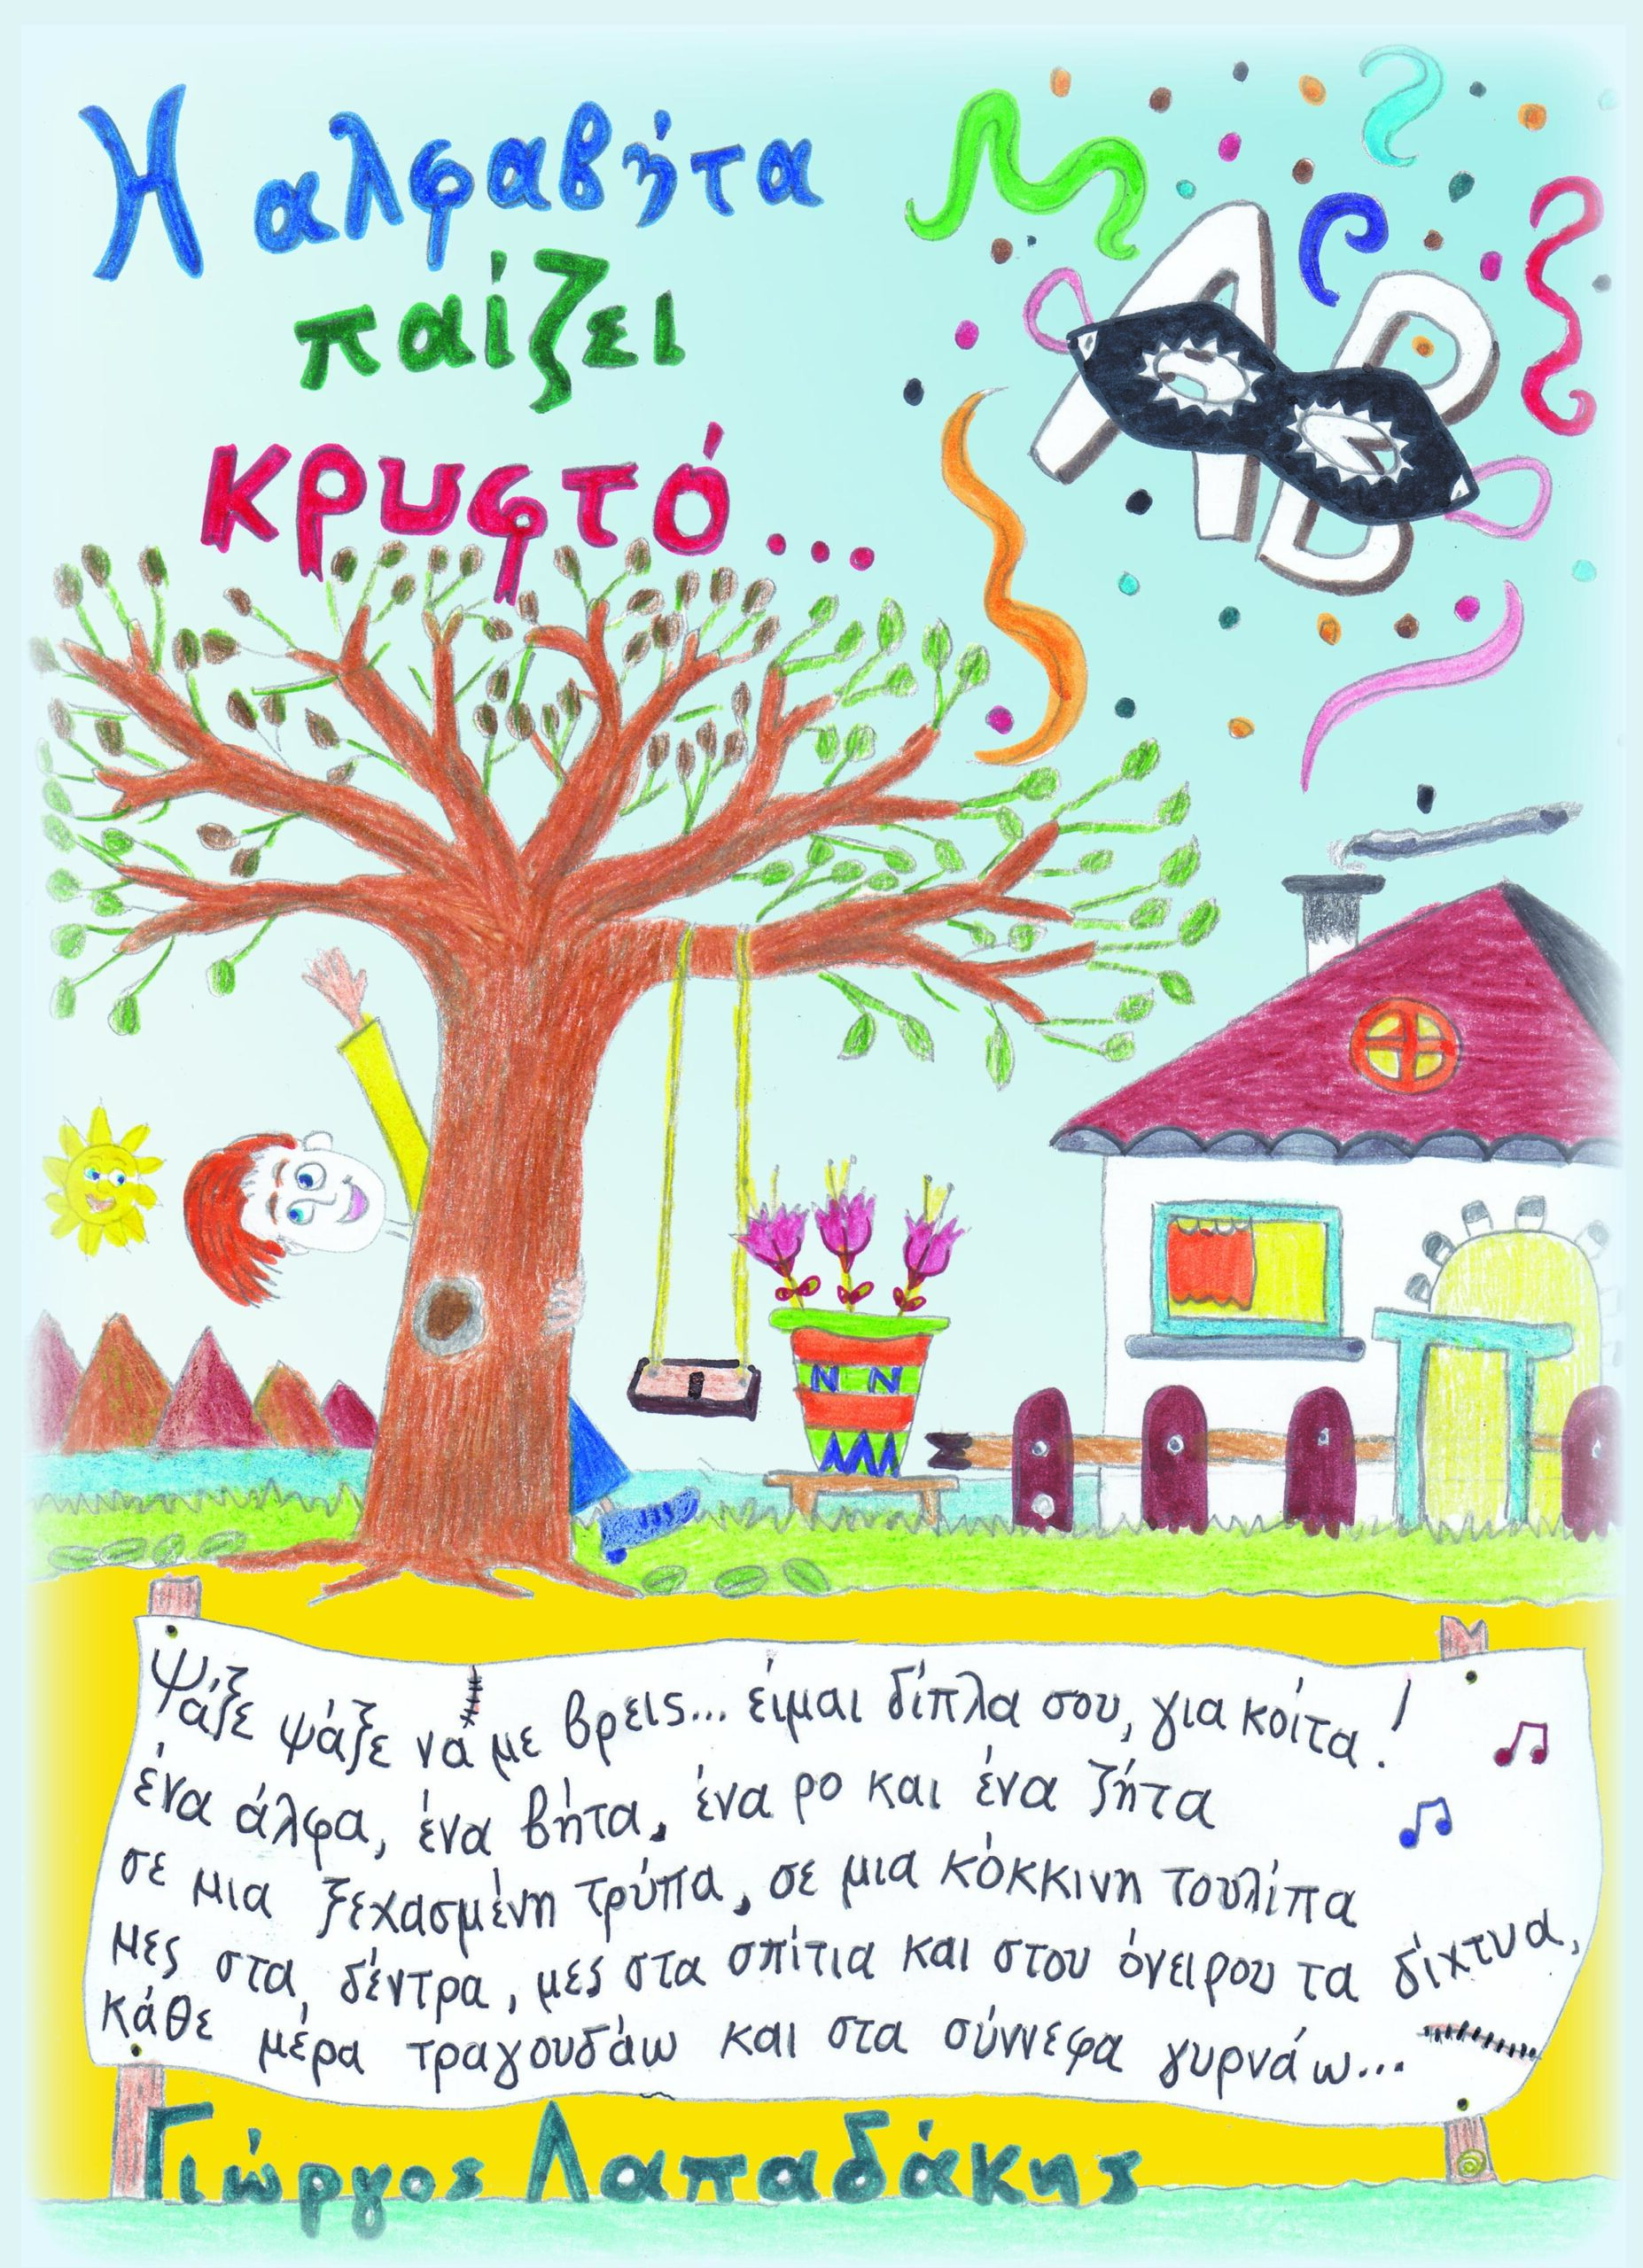 Η αλφαβήτα
παίζει
κρυφτό...
ΑΒ
Ψάξε ψάξε να με βρεις... έιμαι δίπλα σου, για κοίτα!
ένα άλφα, ένα βήτα, ένα ρο και ένα ζήτα
σε μια ξεχασμένη τρύπα, σε μια κόκκινη τουλίπα
μες στα δέντρα, μες στα σπίτια και στου όνειρου τα δίχτυα,
κάθε μέρα τραγουδάω και στα σύννεφα γυρνάω...
Γιώργος Λαπαδάκης